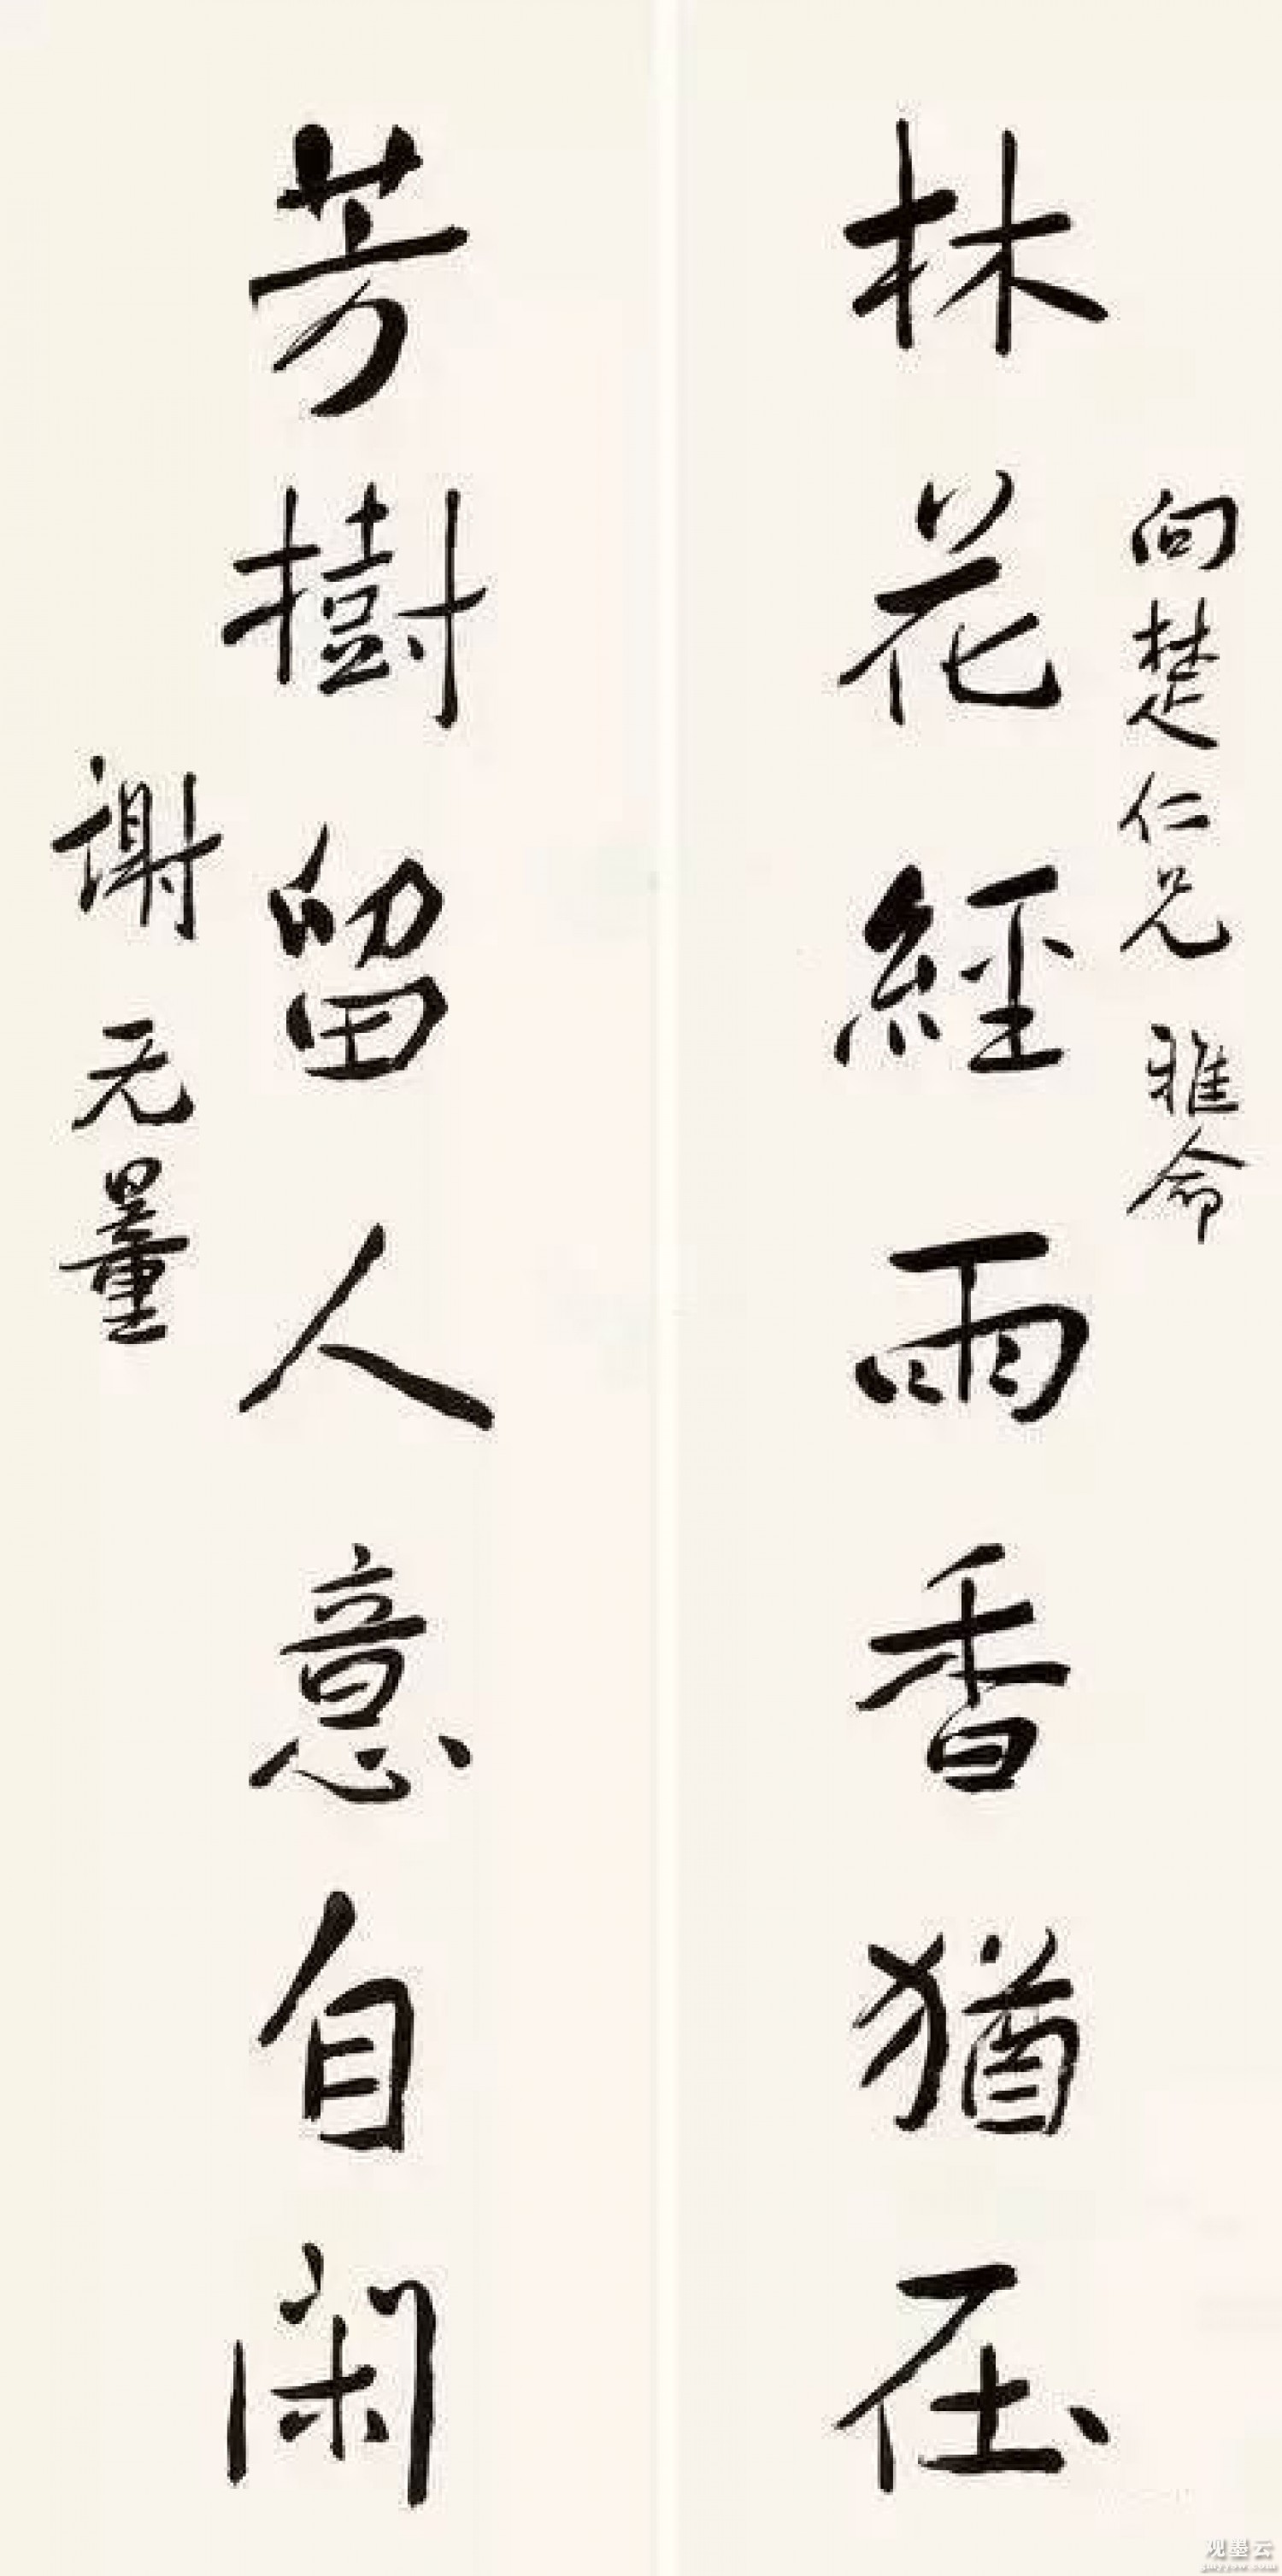 向楚仁兄 雅命
林花經雨香猶在
芳樹留人意自閑
謝无量
观墨云